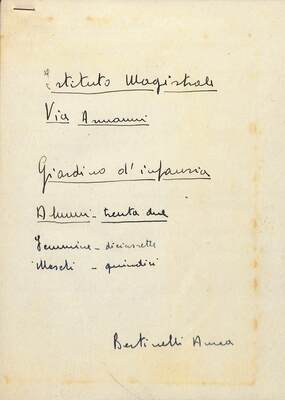 Istituto Magistrale
Via Armanni
Giardino d'infanzia
Alunni - trenta due
Femmine - diciassette
Maschi - quindici
Bertinelli Anna